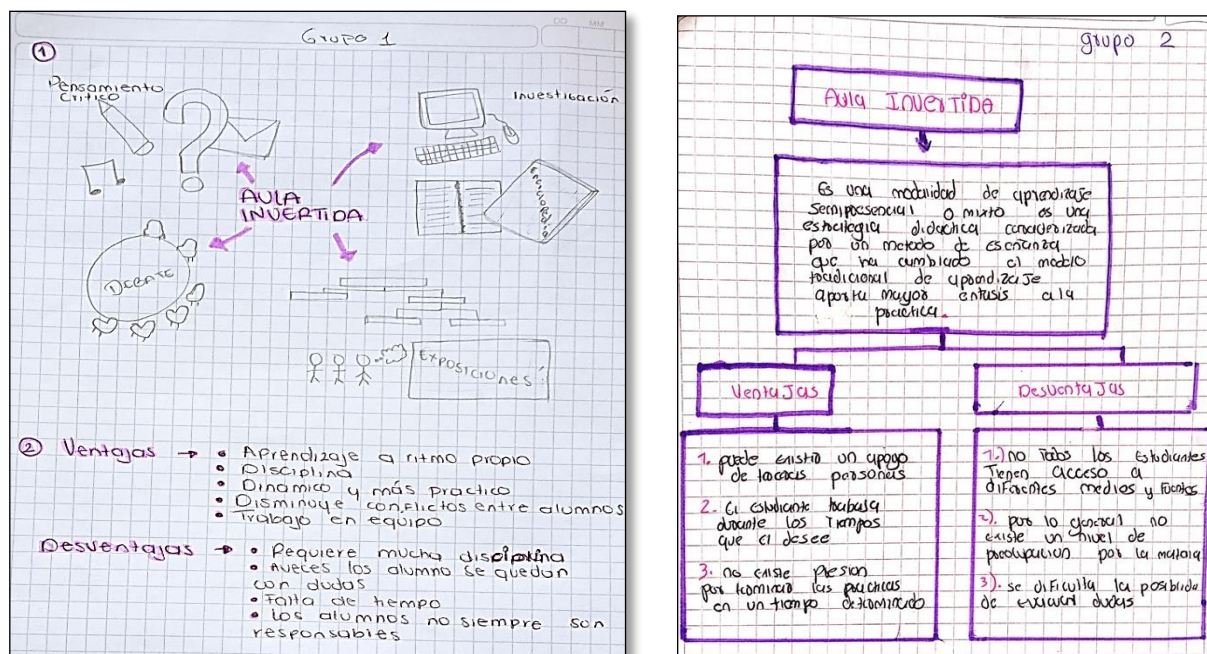 DO MM
Grupo 1
①
Pensamiento
Critico
Investigación
AULA
INVERTIDA
Debate
Exposiciones
② Ventajas → • Aprendizaje a ritmo propio
• Disciplina
• Dinamico y más practico
• Disminuye conflictos entre alumnos
• Trabajo en equipo
Desventajas → • Requiere mucha disciplina
• Aveces los alumno se quedan
con dudas
• Falta de tiempo
• Los alumnos no siempre son
responsables
grupo 2
Aula INVERTIDA
Es una modalidad de aprendizaje
semipresencial o mixto es una
estrategia didactica caracterizada
por un metodo de enseñanza
que ha cambiado el modelo
tradicional de aprendizaje
aporta mayor enfasis a la
practica.
Ventajas
Desventajas
1. puede existir un apoyo
de terceras personas
2. El estudiante trabaja
durante los tiempos
que el desee
3. no existe presion
por terminar las practicas
en un tiempo determinado
1.) no todos los estudiantes
tienen acceso a
diferentes medios y fuentes
2). por lo general no
existe un nivel de
preocupacion por la materia
3). se dificulta la posibilida
de evacuar dudas